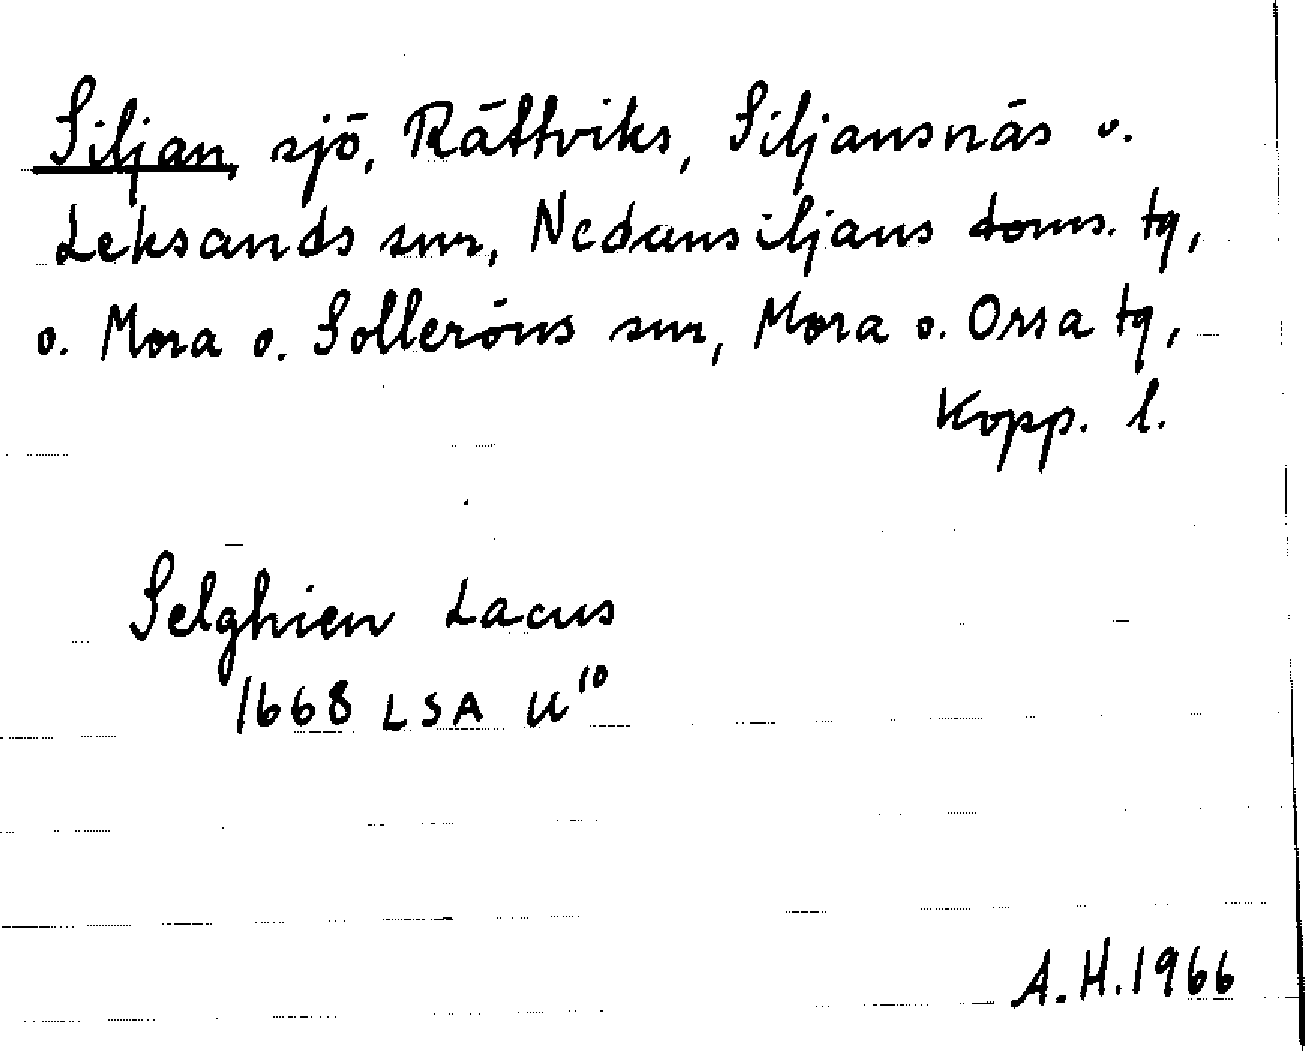 Siljan, sjö, Rättviks, Siljansnäs o.
Leksands snr, Nedansiljans doms. tg,
o. Mora o. Solleröns snr, Mora o. Orsa tg,
Kopp. l.
Selghien Lacus
1668 LSA U¹⁰
A.H.1966